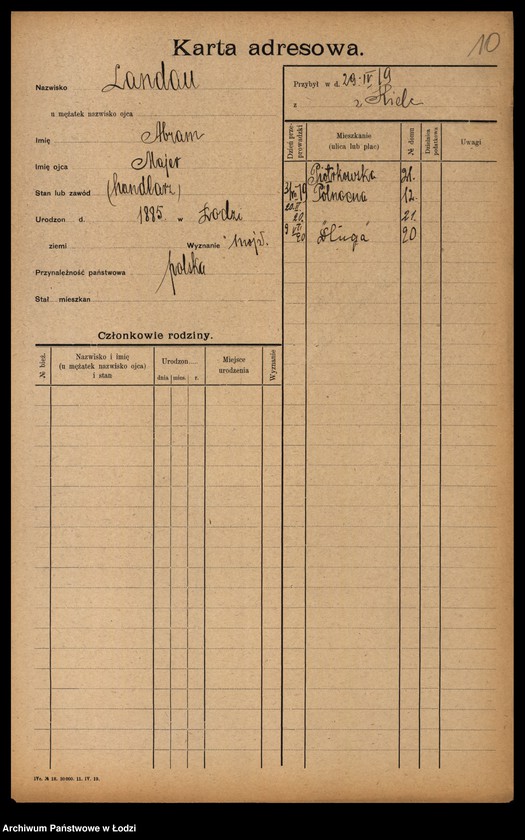 Karta adresowa.
10
Nazwisko Landau
u mężatek nazwisko ojca
Imię Abram
Imię ojca Majer
Stan lub zawód (handlarz)
Urodzon d. 1885 w Łodzi
ziemi Wyznanie mojż.
Przynależność państwowa polska
Stał. mieszkan
Przybył w d. 29-IV 19
z z Kielc
Dzień przeprowadzki
Mieszkanie
(ulica lub plac)
№ domu
Dzielnica podatkowa
Uwagi
Piotrkowska 21.
Północna 12.
20. 21.
9 VII 20 Długa 20
Członkowie rodziny.
№ bież.
Nazwisko i imię
(u mężatek nazwisko ojca)
i stan
Urodzon
dnia mies. r.
Miejsce
urodzenia
Wyznanie
IVo. № 18. 30000. 11. IV. 19.
Archiwum Państwowe w Łodzi